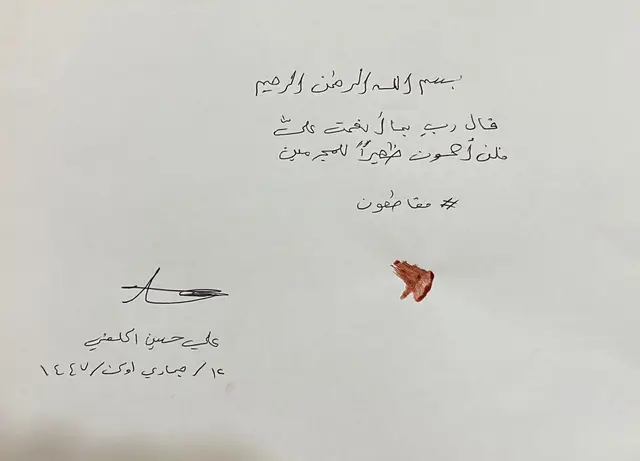 بسم الله الرحمن الرحيم
قال ربِ بما أنعمت عليّ
فلن أكون ظهيراً للمجرمين
# مقاطعون
علي حسين
١٢/ جمادي اولى/ ١٤٤٧